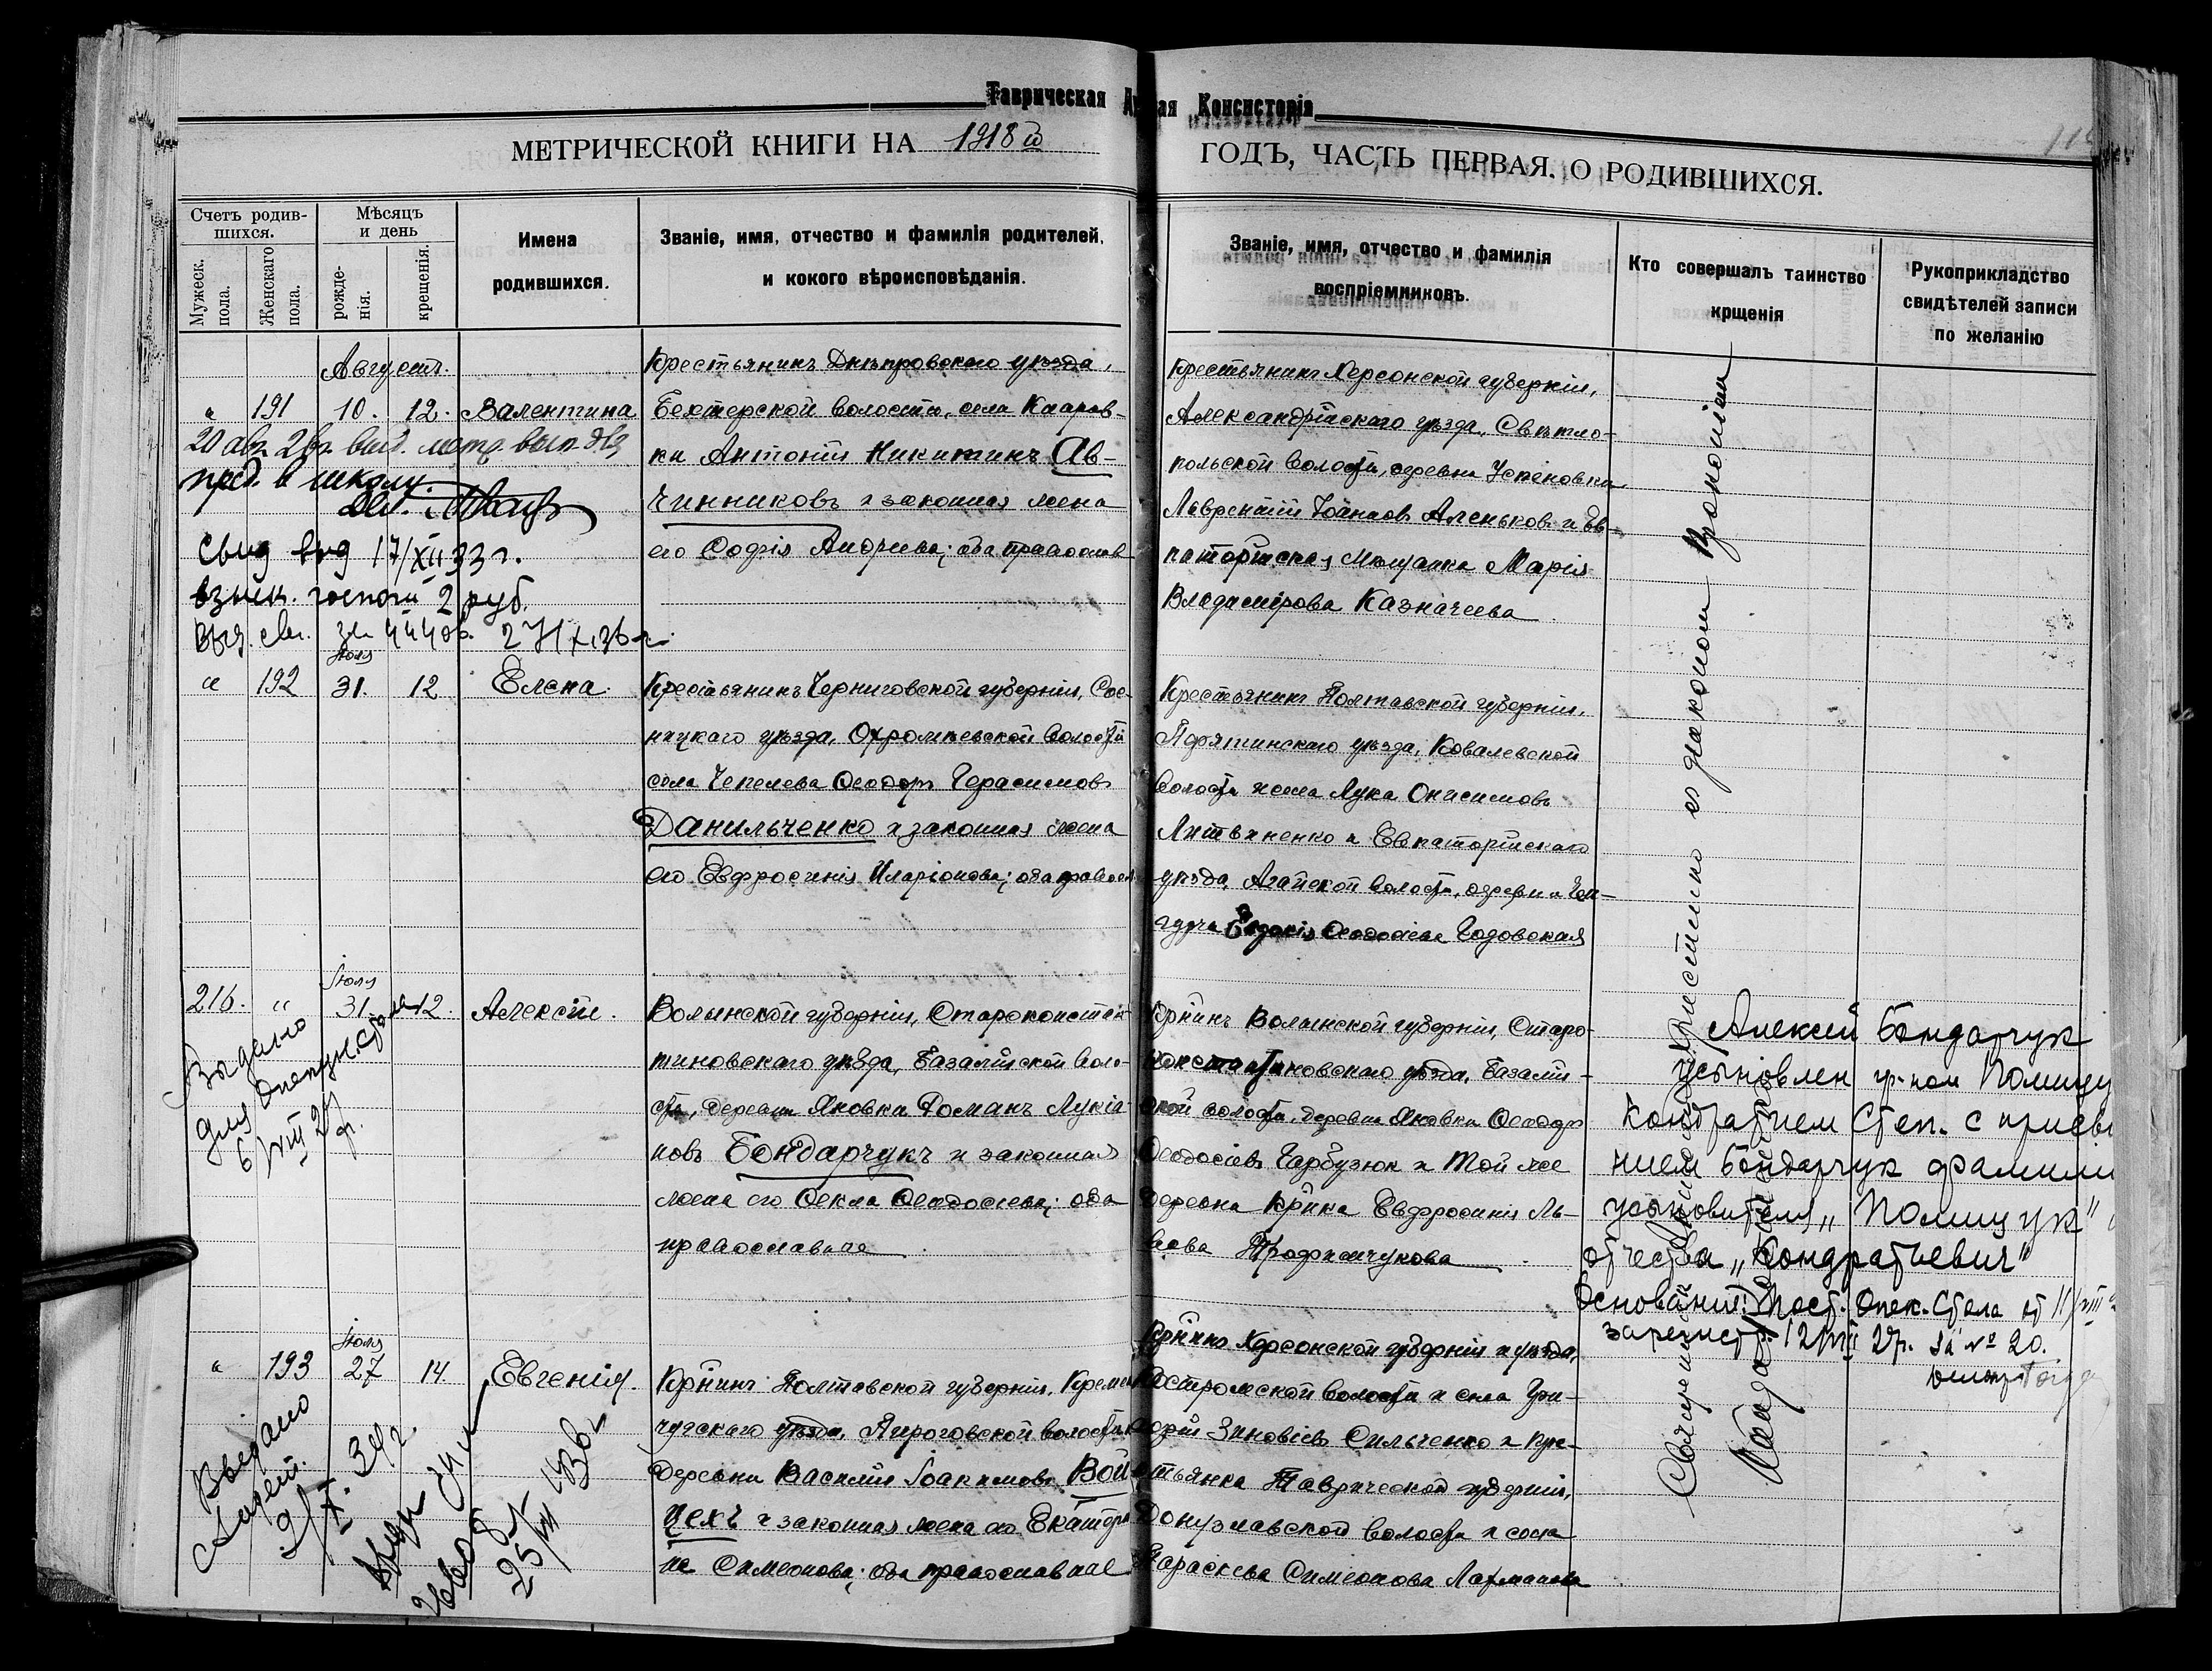 Таврическая
ая Консисторія
МЕТРИЧЕСКОЙ КНИГИ НА 1918й
ГОДЪ, ЧАСТЬ ПЕРВАЯ, О РОДИВШИХСЯ.
Счетъ родив-
шихся.
Мужеск.
пола.
Женскаго
пола.
Мѣсяцъ
и день
рожде-
нія.
крещенія.
Имена
родившихся.
Званіе, имя, отчество и фамилія родителей,
и кокого вѣроисповѣданія.
Званіе, имя, отчество и фамилія
воспріемниковъ.
Кто совершалъ таинство
крщенія
Рукоприкладство
свидѣтелей записи
по желанію
Августъ.
" 191 10. 12. Валентина
Крестьянинъ Днѣпровскаго уѣзда,
Бехтерской волости, села Каиров-
ки Антоній Никитинъ Ав-
чинниковъ и законная жена
его Софія Андреева; оба православ
Крестьянинъ Херсонской губерніи,
Александрійскаго уѣзда, Свѣтло-
польской волости, деревни Успеновки
Лаврентій Іоанновъ Аленьковъ и Ев-
паторійская Мѣщанка Марія
Владимірова Казначеева.
пред. в школу.
Свид выд 17/XII 33 г.
взыск. госпош 2 руб.
Іюля
" 192 31. 12 Елена.
Крестьянинъ Черниговской губерніи, Сос-
ницкаго уѣзда, Охромѣевской волости
села Чепелева Ѳеодоръ Герасимовъ
Данильченко и законная жена
его Евфросинія Иларіонова; оба правосл
Крестьянинъ Полтавской губерніи,
Пирятинскаго уѣзда, Ковалевской
волости и села Лука Онисимовъ
Литвиненко и Евпаторійскаго
уѣзда, Агайской волости, деревни
Евдокія Ѳеодосіева Годовская
Іюля
216. " 31. 12. Алексѣй.
Волынской губерніи, Староконстан-
тиновскаго уѣзда, Базалійской воло-
сти, деревни Яновки Романъ Лукіа-
новъ Бондарчукъ и законная
жена его Ѳекла Ѳеодосіева; оба
православные.
Кр–нинъ Волынской губерніи, Старо-
константиновскаго уѣзда, Базалій-
ской волости, деревни Яновки Ѳеодоръ
Ѳеодосіевъ Гарбузюк и той же
деревни Кр–нка Евфросинія Ль-
вова Трофимчукова.
Выдано
для опекун. стола
6/VIII 27 г.
Алексей Бондарчук
усыновлен гр-ном Полищу
Кондратием Степ. с присво
нием Бондарчук фамилии
усыновителя „Полищук"
отчества „Кондратьевич"
Основание: Пост. Опек. Стола от 11/VIII
зарегистр. 12/VIII 27г. за № 20.
Іюля
" 193 27 14 Евгенія.
Кр–нинъ Полтавской губерніи, Кремен
чугскаго уѣзда, Пироговской волости и
деревни Василій Іоакимовъ Вой-
цехъ и законная жена его Екатери
на Симеонова; оба православные
Кр–нинъ Херсонской губерніи и уѣзда,
Костромской волости и села Гри-
горій Зиновіевъ Сильченко и Кре-
стьянка Таврической губерніи,
Донузлавской волости и села
Параскева Симеонова Лахманова
Выдано